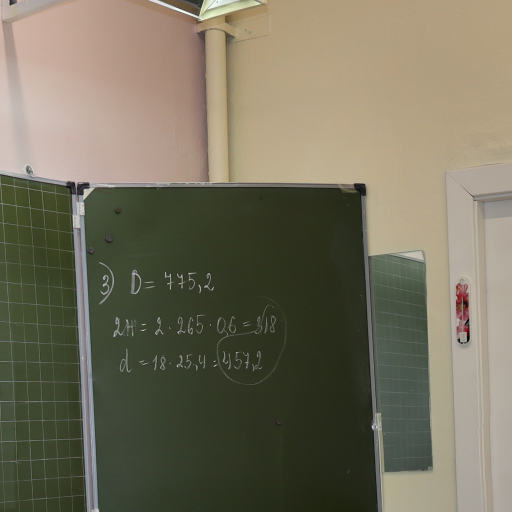 3) D = 775,2
2H = 2 · 265 · 0,6 = 318
d = 18 · 25,4 = 457,2